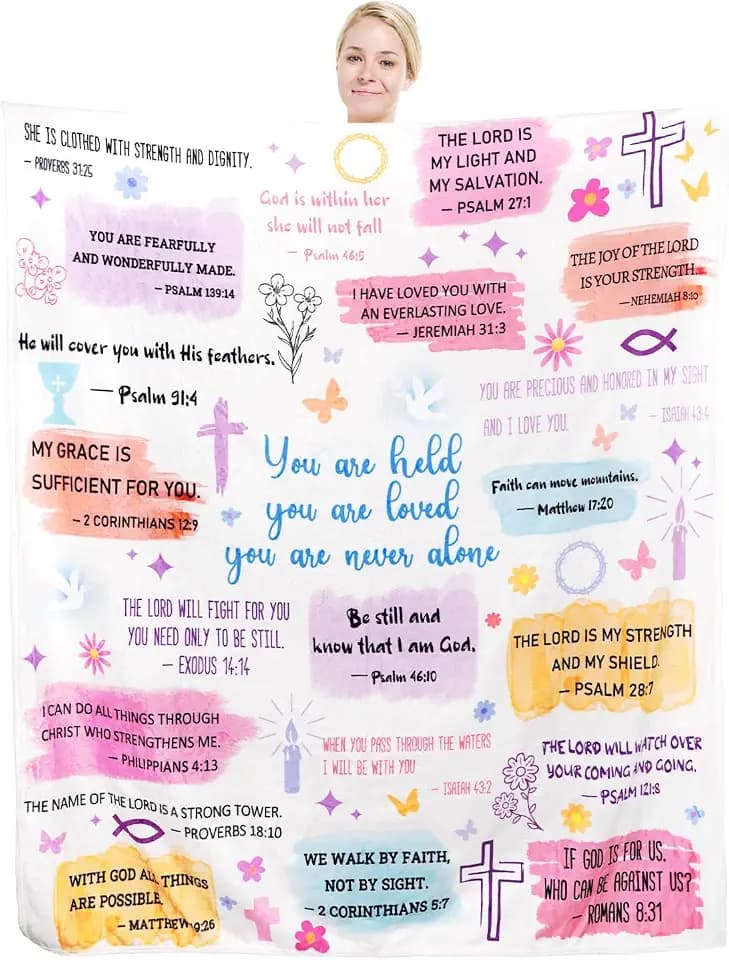 SHE IS CLOTHED WITH STRENGTH AND DIGNITY.
— PROVERBS 31:25
God is within her
she will not fall
— Psalm 46:5
THE LORD IS
MY LIGHT AND
MY SALVATION.
— PSALM 27:1
YOU ARE FEARFULLY
AND WONDERFULLY MADE.
— PSALM 139:14
I HAVE LOVED YOU WITH
AN EVERLASTING LOVE.
— JEREMIAH 31:3
THE JOY OF THE LORD
IS YOUR STRENGTH.
— NEHEMIAH 8:10
He will cover you with His feathers.
— Psalm 91:4
YOU ARE PRECIOUS AND HONORED IN MY SIGHT
AND I LOVE YOU.
— ISAIAH 43:4
MY GRACE IS
SUFFICIENT FOR YOU.
— 2 CORINTHIANS 12:9
You are held
you are loved
you are never alone
Faith can move mountains.
— Matthew 17:20
THE LORD WILL FIGHT FOR YOU
YOU NEED ONLY TO BE STILL.
— EXODUS 14:14
Be still and
know that I am God.
— Psalm 46:10
THE LORD IS MY STRENGTH
AND MY SHIELD.
— PSALM 28:7
I CAN DO ALL THINGS THROUGH
CHRIST WHO STRENGTHENS ME.
— PHILIPPIANS 4:13
WHEN YOU PASS THROUGH THE WATERS
I WILL BE WITH YOU
— ISAIAH 43:2
THE LORD WILL WATCH OVER
YOUR COMING AND GOING.
— PSALM 121:8
THE NAME OF THE LORD IS A STRONG TOWER.
— PROVERBS 18:10
WITH GOD ALL THINGS
ARE POSSIBLE.
— MATTHEW 9:26
WE WALK BY FAITH,
NOT BY SIGHT.
— 2 CORINTHIANS 5:7
IF GOD IS FOR US,
WHO CAN BE AGAINST US?
— ROMANS 8:31